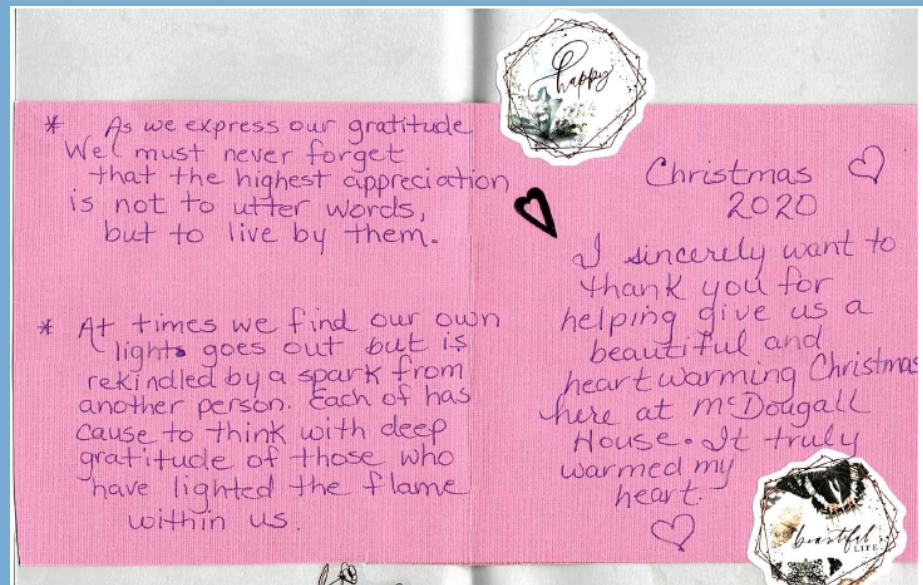 * As we express our gratitude
We must never forget
that the highest appreciation
is not to utter words,
but to live by them.
* At times we find our own
light goes out but is
rekindled by a spark from
another person. Each of has
cause to think with deep
gratitude of those who
have lighted the flame
within us.
happy
Christmas
2020
I sincerely want to
thank you for
helping give us a
beautiful and
heartwarming Christmas
here at McDougall
House. It truly
warmed my
heart.
beautiful
LIFE